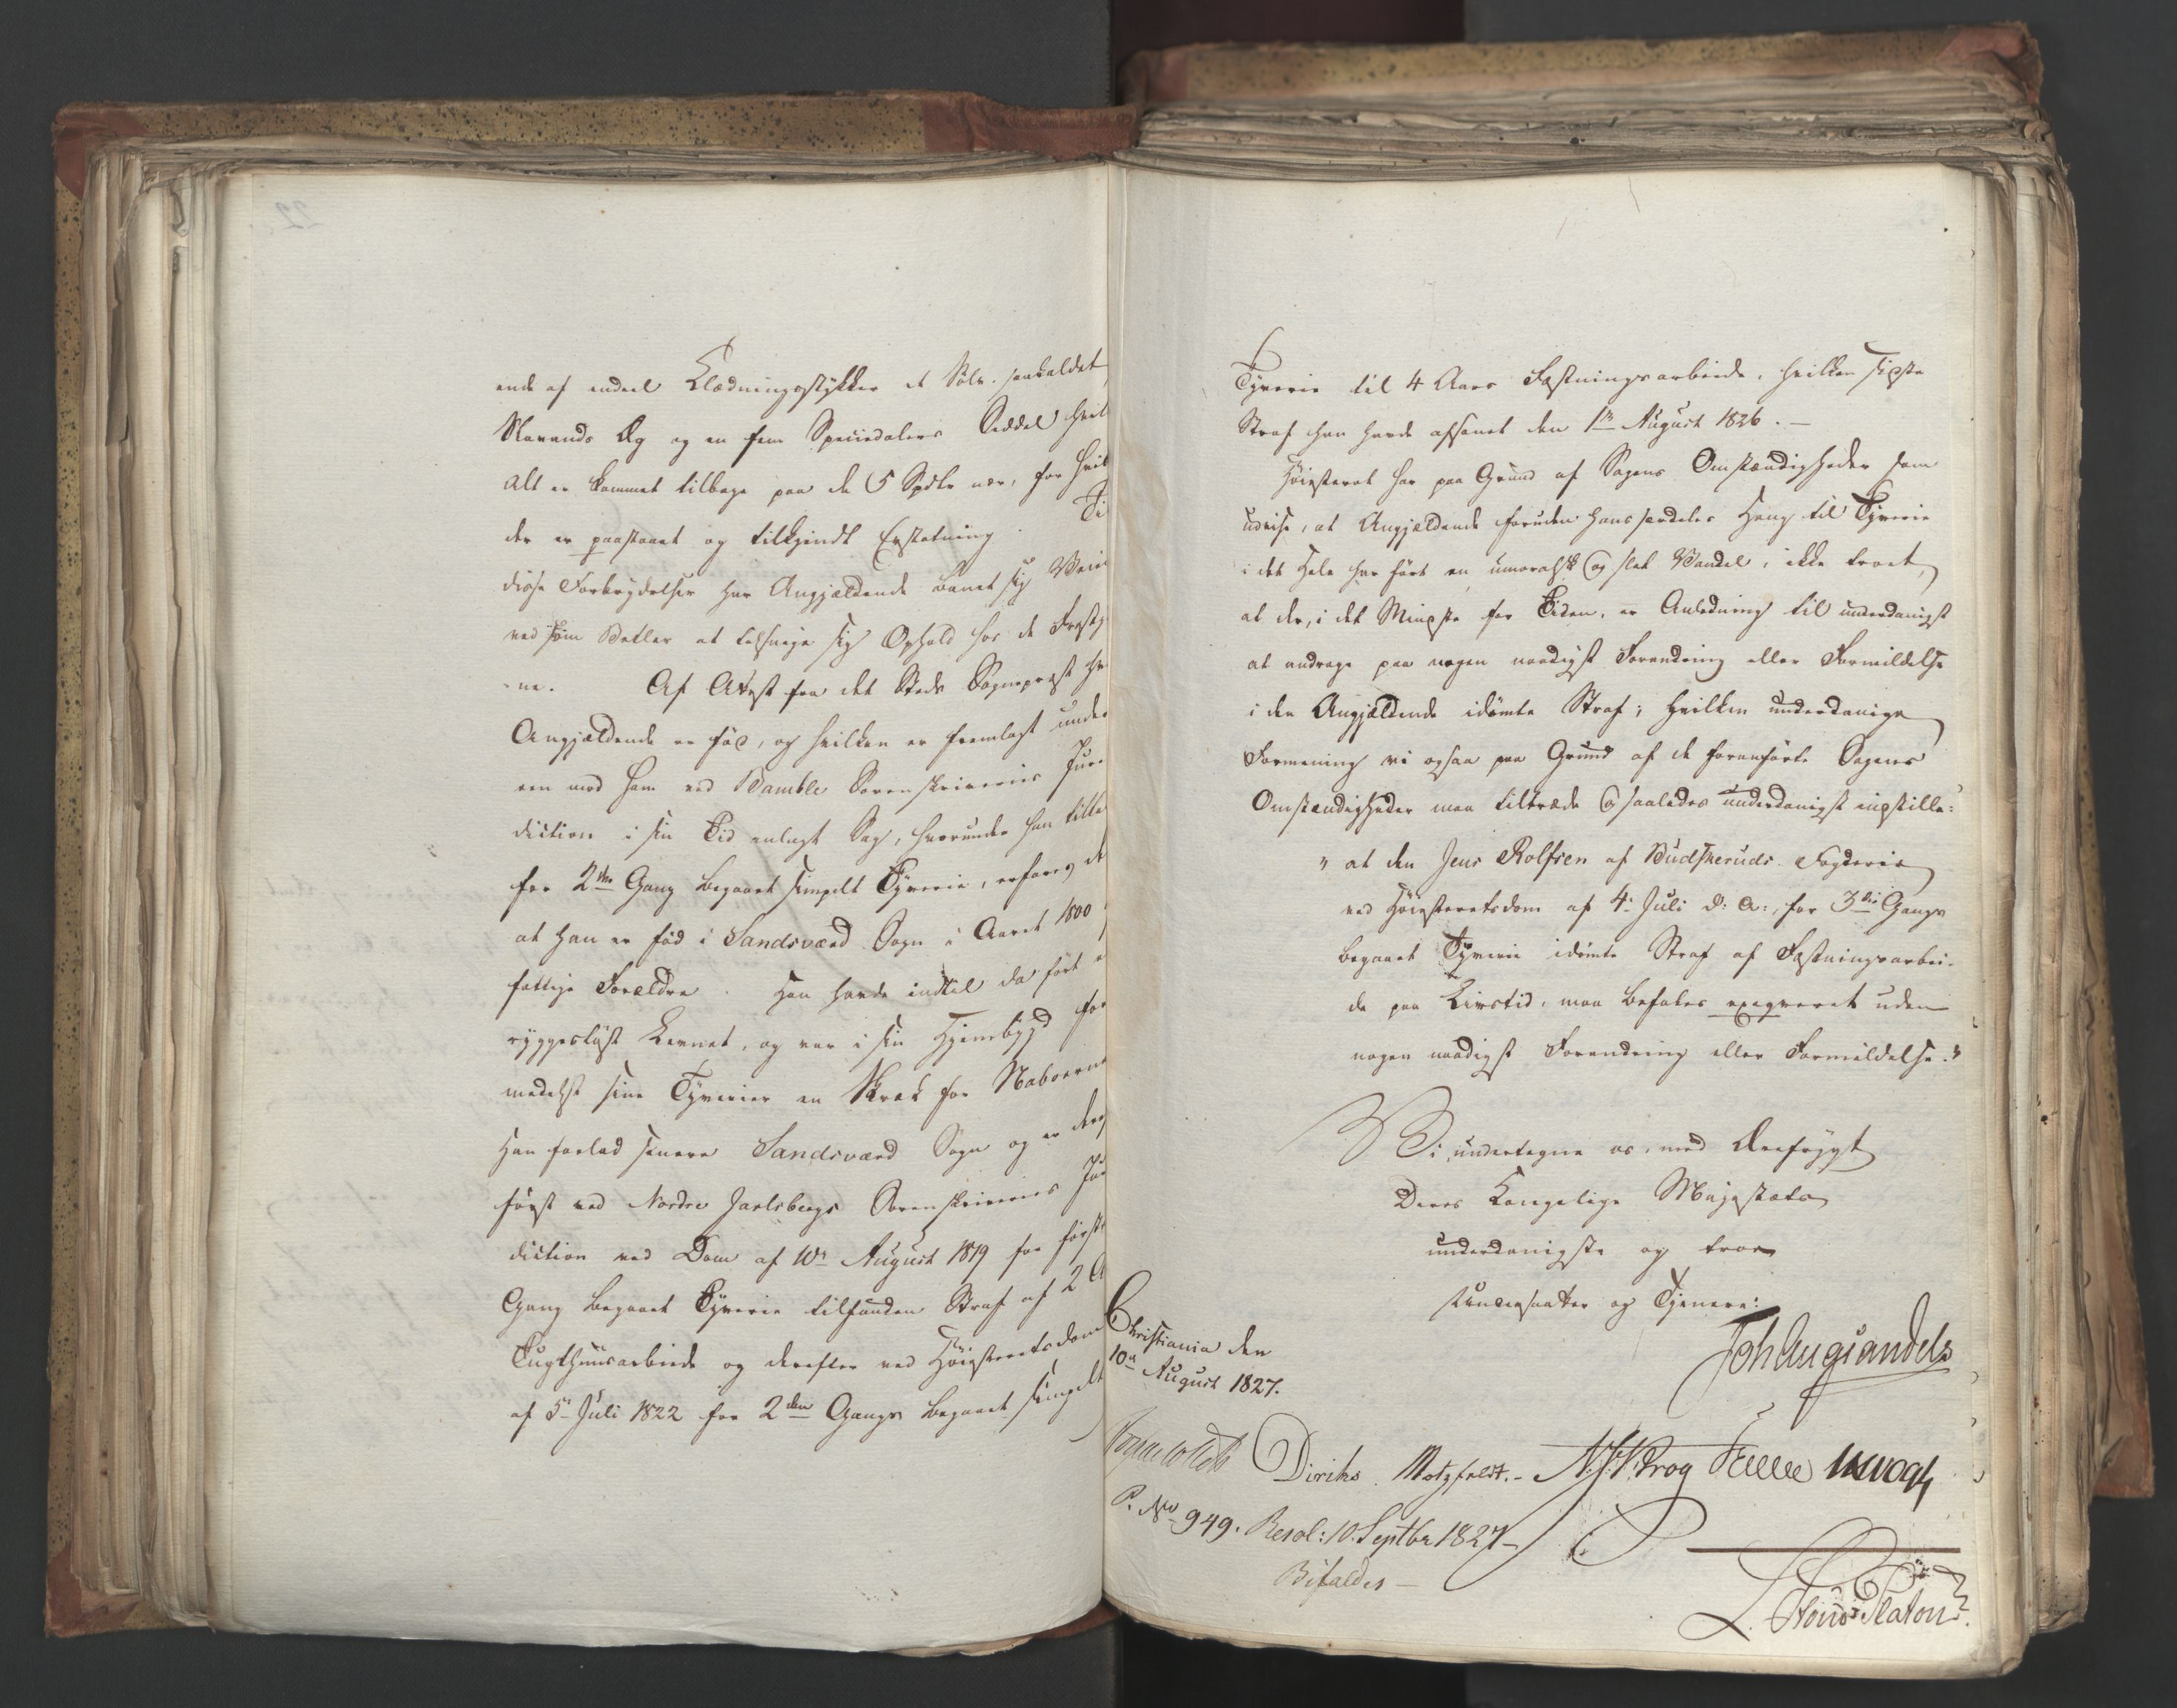 ende af endeel Klædningsstykker et Sølv. saakaldet
Navneds Æg og en fem Speciedalers Seddel hvil
alt er kommet tilbage paa de 5 Spdlr nær, for hvil
der er paastaaet og tilkjendt Erstatning. Ti
disse Forbrydelser har Angjældende banet sig Veien
ved som Betler at tilsnige sig Ophold hos de Frastj
-ne. Af Attest fra det Steds Sognepræst hv
Angjældende er fød, og hvilken er fremlagt under
een mod ham ved Bamble Sorenskriveries Juris
diction i sin Tid anlagt Sag, hvorunder han tilta
for 2den Gang begaaet simpelt Tyverie, erfares det
at han er fød i Sandsværd Sogn i Aaret 1800
fattige Forældre. Han havde indtil da ført e
ryggesløst Levnet, og var i sin Hjembygd for
medelst sine Tyverier en Skræk for Naboerne
Han forlod senere Sandsværd Sogn og er derp
først ved Nordre Jarlsbergs Sorenskriveries Juris
diction ved Dom af 10de August 1819 for første
Gang begaaet Tyverie tilfunden Straf af 2 A
Tugthuusarbeide og derefter ved Høiesteretsdom
af 5te Juli 1822 for 2den Gangs begaaet simpelt
Tyverie til 4 Aars Fæstningsarbeide, hvilken sidste
Straf han havde afsonet den 1ste August 1826. —
Høiesteret har paa Grund af Sagens Omstændigheder som
udvise, at Angjældende foruden hans særdeles Hang til Tyverie
i det Hele har ført en umoralsk og slet Vandel, ikke troet,
at der, i det Mindste for Tiden, er Anledning til underdanigst
at andrage paa nogen naadigst Forandring eller Formildelse
i den Angjældende idømte Straf; hvilken underdanige
Formening vi ogsaa paa Grund af de foranførte Sagens
Omstændigheder maa tiltræde og saaledes underdanigst indstille:
" at den Jens Rolfsen af Budskeruds Fogderie
ved Høiesteretsdom af 4de Juli d: A:, for 3die Gangs
begaaet Tyverie idømte Straf af Fæstningsarbei-
de paa Livstid, maa befales exeqveret uden
nogen naadigst Forandring eller Formildelse."
Vi undertegne os, med Ærefrygt
Deres Kongelige Majestæts
underdanigste og troe
Undersaatter og Tjenere:
Joh Aug Sandels
Christiania den
10de August 1827.
Diriks. Motzfeldt.- N.J.K.Krog Fasting JHVogt
P. No 949. Resol: 10. Septbr 1827-
Bifaldes —
L. Størmer Platou